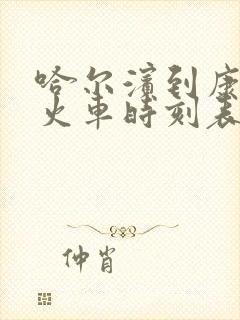 哈尔滨到康
火车时刻表
仲肖